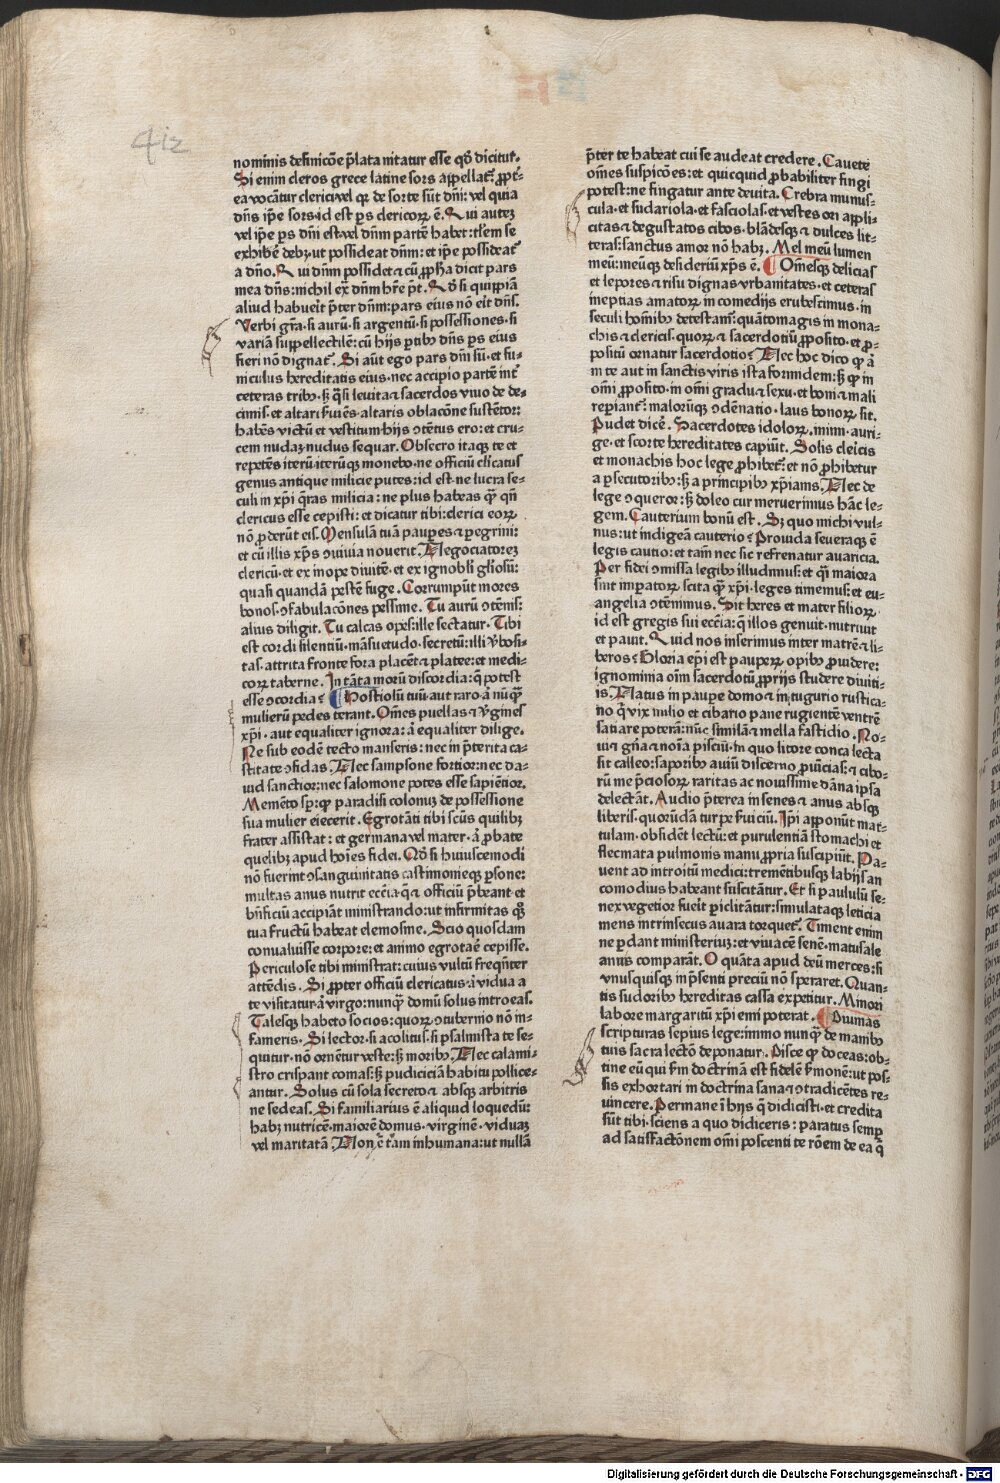 412
nominis definicōe p̄lata nitatur esse qd̄ dicitur.
Si enim cleros grece latine sors appellat᷑: ꝓpt̄-
ea vocātur clerici vel qꝛ de sorte sūt dn̄i: vel quia
dn̄s ip̄e sors·id est p̄s clericoꝝ ē. Qui autez
vel ip̄e p̄s dn̄i est vel dn̄m partē habet: tl̄em se
exhibē debꝫ ut possideat dn̄m: et ip̄e possideat᷑
a dn̄o. Qui dn̄m possidet ⁊ cū ꝓph̄a dicit pars
mea dn̄s: nichil ex̄ dn̄m hr̄e p̄t. Qd̓ si quippiā
aliud habuerit p̄ter dn̄m: pars eius nō erit dn̄s.
Verbi gr̄a·si aurū·si argentū·si possessiones·si
variā suppellectilē: cū hijs ꝑtibꝫ dn̄s p̄s eius
fieri nō dignat᷑. Si aūt ego pars dn̄i sū·et fu-
niculus hereditatis eius·nec accipio partē int̄
ceteras tribꝫ·sꝫ q̄si leuita ⁊ sacerdos viuo de de-
cimis·et altari ẜuiēs·altaris oblacōne sustētor:
habēs victū et vestitum·hijs ꝯtētus ero: et cru-
cem nudaꝫ nudus sequar. Obsecro itaqꝫ te et
repetēs iterū iterūqꝫ monebo·ne officiū cl̄icatus
genus antique milicie putes: id est·ne lucra se-
culi in xp̄i q̄ras milicia: ne plus habeas qꝫ̄ qn̄
clericus esse cepisti: et dicatur tibi: clerici eoꝝ
nō ꝓderūt eis. Mensulā tuā pauꝑes ⁊ ꝑegrini:
et cū illis xp̄s ꝯuiuia nouerit. Negociatorez
clericū·et ex inope diuitē·et ex ignobli gl̄iosū:
quasi quandā pestē fuge. Corrumpūt mores
bonos·ꝯfabulacōnes pessime. Tu aurū ꝯtēnis:
alius diligit. Tu calcas opes: ille sectatur. Tibi
est cordi silentiū·māsuetudo·secretū: illi v̄bosi-
tas·attrita fronte fora placēt ⁊ platee: et medi-
coꝝ taberne. In tāta morū discordia: q̄ potest
esse ꝯcordia? Hostiolū tuū·aut raro·a nūqꝫ̄
mulierū pedes terant. Om̄es puellas ⁊ v̄gines
xp̄i·aut equaliter ignora: a equaliter dilige.
Ne sub eodē tecto manseris: nec in p̄terita ca-
stitate ꝯfidas. Nec sampsone fortior: nec da-
uid sanctior: nec salomone potes esse sapiētior.
Memēto sp̄: qꝫ paradisi colonuꝫ de possessione
sua mulier eiecerit. Egrotāti tibi scūs quilibꝫ
frater assistat: et germana vel mater·a ꝓbate
quelibꝫ apud hoīes fidei. Qd̓ si huiuscemodi
nō fuerint ꝯsanguinitatis castimonieqꝫ ꝑsone:
multas anus nutrit ecc̄ia q̄ ⁊ officiū p̄beant·et
bn̄ficiū accipiāt ministrando: ut infirmitas qꝫ
tua fructū habeat elemosine. Scio quosdam
conualuisse corpore: et animo egrotaē cepisse.
Periculose tibi ministrat: cuius vultū freqn̄ter
attēdis. Si ꝓpter officiū clericatus·a vidua a
te visitatur·a virgo: nunqꝫ̄ domū solus introeas.
Talesqꝫ habeto socios: quoꝝ ꝯtubernio nō in-
fameris. Si lector·si acolitus·si psalmista te se-
quitur·nō ornētur veste: sꝫ moribꝫ. Nec calami-
stro crispant comas: sꝫ pudiciciā habitu pollice-
antur. Solus cū sola secreto ⁊ absqꝫ arbitris
ne sedeas. Si familiarius ē aliquid loquedū:
habꝫ nutricē·maiorē domus·virginē·viduaꝫ
vel maritatā. Non ē tā inhumana: ut nullū
p̄ter te habeat cui se audeat credere. Cauete
om̄es suspicōes: et quicquid ꝓbabiliter fingi
potest: ne fingatur ante deuita. Crebra munus-
cula·et sudariola·et fasciolas·et vestes ori appli-
citas ⁊ degustatos cibos·blādesqꝫ ⁊ dulces lit-
teras: sanctus amor nō habꝫ. Mel meū lumen
meū: meūqꝫ desideriū xp̄s ē. Om̄esqꝫ delicias
et lepores ⁊ risu dignas vrbanitates·et ceteras
ineptias amatoꝝ in comedijs erubescimus·in
seculi hoībꝫ detestam᷑: quātomagis in mona-
chis ⁊ clericis·quoꝝ ⁊ sacerdotiū ꝓposito·et ꝓ-
positū ornatur sacerdotio? Nec hoc dico qꝫ a
in te aut in sanctis viris ista formidem: sꝫ qꝫ in
om̄i ꝓposito·in om̄i gradu ⁊ sexu·et boni ⁊ mali
reꝑiant᷑: maloruqꝫ ꝯdēnatio·laus bonoꝝ sit.
Pudet dicē. Sacerdotes idoloꝝ·mimi·auri-
ge·et scorte hereditates capiūt. Solis cleicis
et monachis hoc lege ꝓhibet᷑: et nō ꝓhibetur
a ꝑsecutoribꝫ: sꝫ a principibꝫ xp̄ianis. Nec de
lege ꝯqueror: sꝫ doleo cur meruerimus hāc le-
gem. Cauterium bonū est. Sꝫ quo michi vul-
nus: ut indigeā cauterio? Prouida seueraqꝫ ē
legis cautio: et tam̄ nec sic refrenatur auaricia.
Per fidei ꝯmissa legibꝫ illudimus: et q̄si maiora
sint imꝑatoꝝ scita qꝫ̄ xp̄i·leges timemus: et eu-
angelia ꝯtēnimus. Sit heres et mater filioꝝ
id est gregis sui ecc̄ia: q̄ illos genuit·nutriuit
et pauit. Quid nos inserimus inter matrē ⁊ li-
beros? Gloria ep̄i est pauperꝝ opibꝫ ꝓuidere:
ignominia oīm sacerdotū ꝓprijs studere diuiti-
is. Natus in pauꝑe domo ⁊ in tugurio rustica-
no q̄ vix milio et cibario pane rugientē ventrē
satiare poterā: nūc similā ⁊ mella fastidio. No-
ui ⁊ gn̄a ⁊ noīa pisciū·in quo litore conca lecta
sit calleo: saporibꝫ auiū discerno ꝓuīcias: ⁊ cibo-
rū me p̄ciosoꝝ raritas ac nouissime dāna ipsa
delectāt. Audio p̄terea in senes ⁊ anus absqꝫ
liberis·quorūdā turpe ẜuiciū. Ip̄i apponūt mat-
tulam·obsidēt lectū: et purulentiā stomachi et
flecmata pulmonis manu ꝓpria suscipiūt. Pa-
uent ad introitū medici: tremētibusqꝫ labijs an
comodius habeant suscitātur. Et si paululū se-
nex vegetior fuerit ꝑiclitātur: simulataqꝫ leticia
mens intrinsecus auara torquet᷑. Timent enim
ne ꝑdant ministeriuꝫ: et viuacē senē·matusale
annis comparāt. O quāta apud deū merces: si
vnusquisqꝫ in p̄senti preciū nō speraret. Quan-
tis sudoribꝫ hereditas cassa expetitur. Minori
labore margaritū xp̄i emi poterat. Diuinas
scripturas sepius lege: immo nunqꝫ̄ de manibꝫ
tuis sacra lectō deponatur. Disce qꝫ doceas: ob-
tine eū qui ẜm doctrinā est fidelē ẜmonē: ut pos-
sis exhortari in doctrina sana ⁊ ꝯtradicētes re-
uincere. Permane ī hijs q̄ didicisti·et credita
sūt tibi·sciens a quo didiceris: paratus semꝑ
ad satisfactōnem om̄i poscenti te rōem de ea q̄
Digitalisierung gefördert durch die Deutsche Forschungsgemeinschaft - DFG